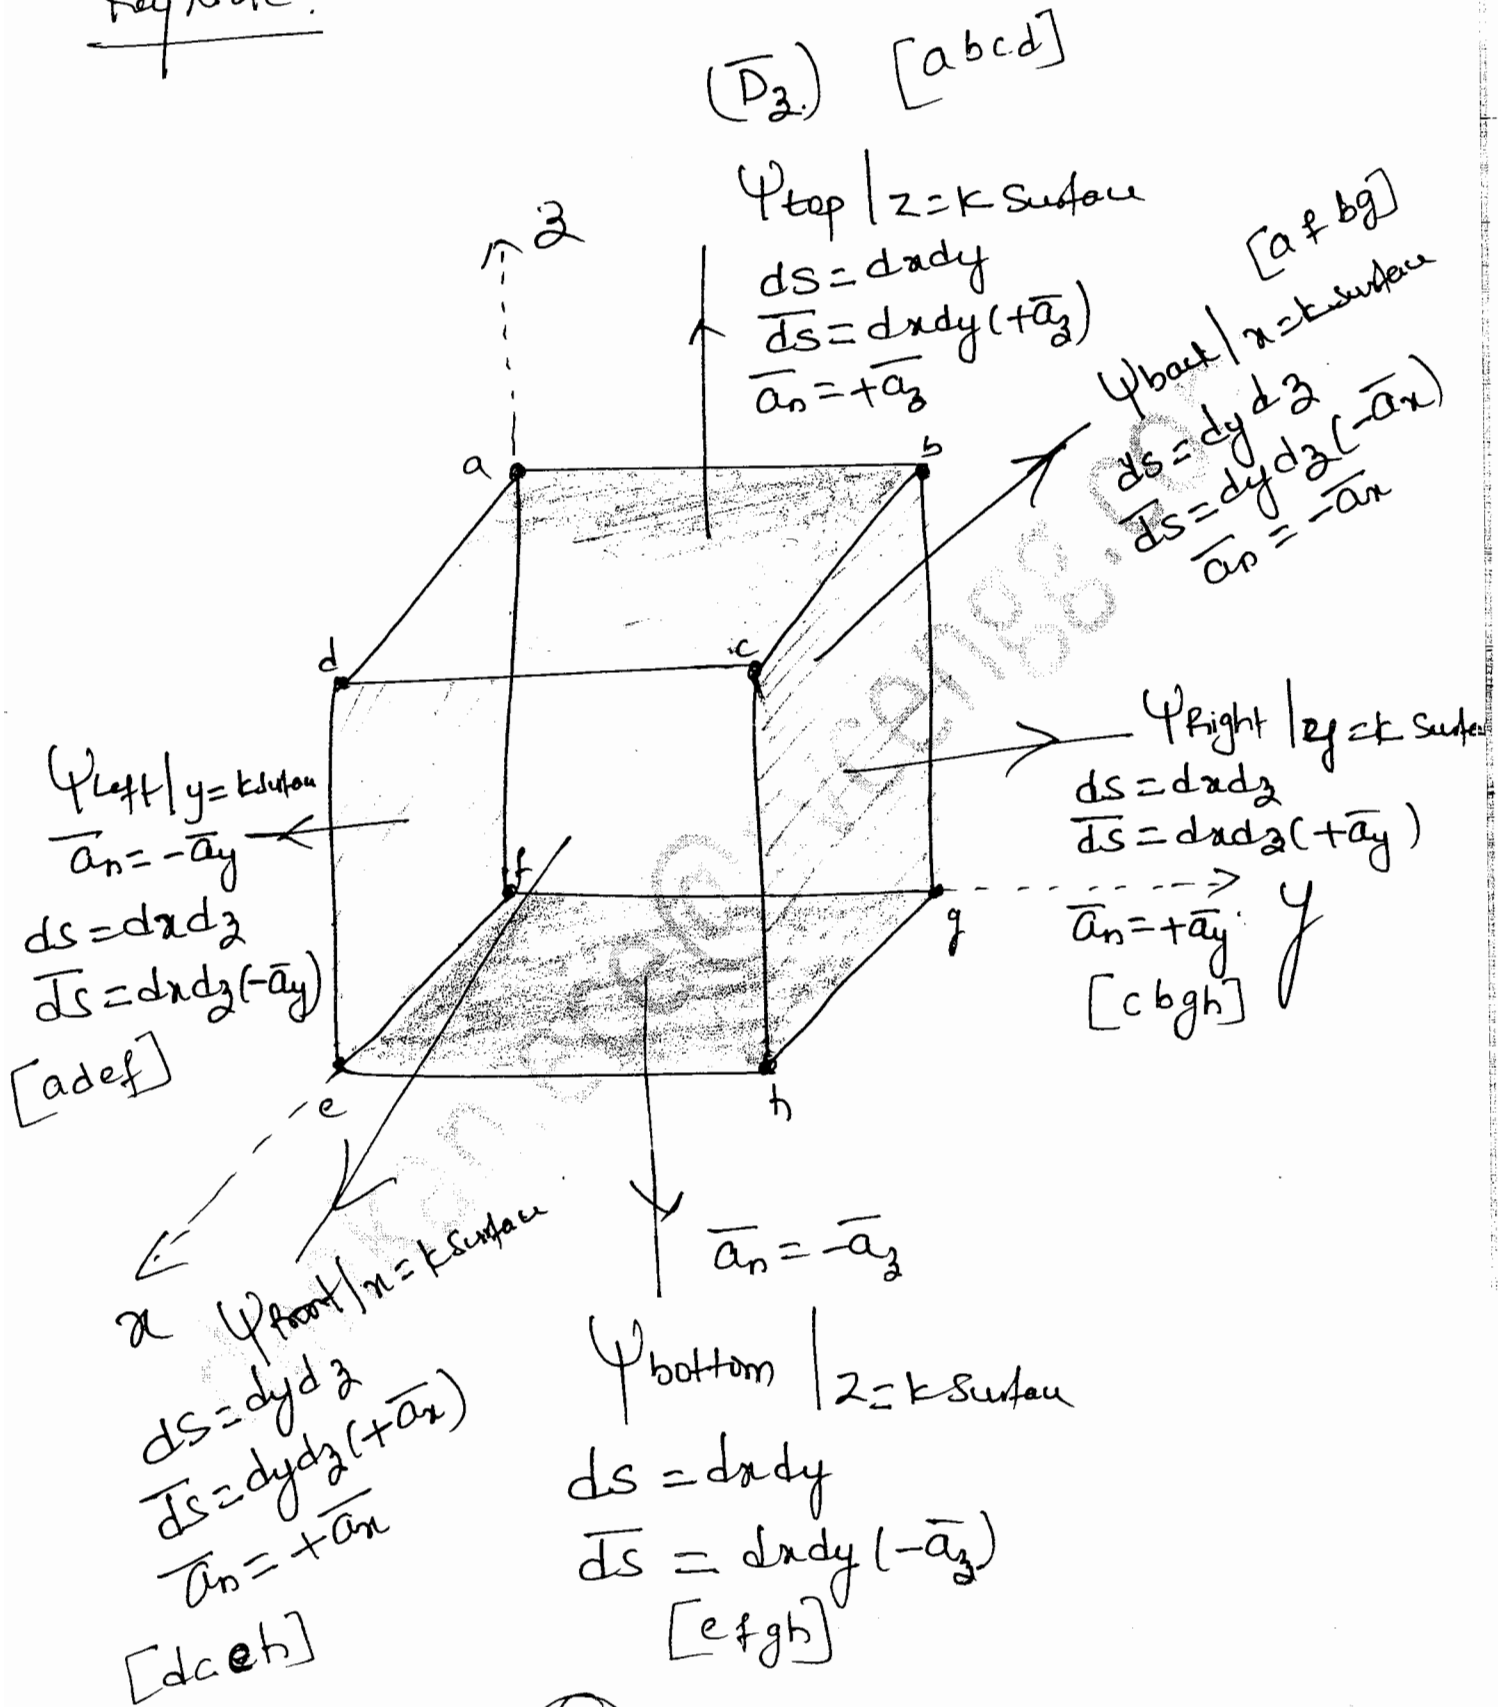 Key Note:
(D̅z.) [abcd]
z
Ψtop | z=k Surface
ds=dxdy
d̅s̅=dxdy(+a̅z)
a̅n=+a̅z
[afbg]
Ψback | x=k surface
ds=dydz
d̅s̅=dydz(-a̅x)
a̅n=-a̅x
a
b
d
c
Ψleft | y=k surface
a̅n=-a̅y
ds=dxdz
d̅s̅=dxdz(-a̅y)
[adef]
ΨRight | y=k Surface
ds=dxdz
d̅s̅=dxdz(+a̅y)
a̅n=+a̅y
[cbgh]
y
f
g
e
h
x
Ψfront | x=k Surface
ds=dydz
d̅s̅=dydz(+a̅x)
a̅n=+a̅x
[dceh]
a̅n=-a̅z
Ψbottom | z=k Surface
ds=dxdy
d̅s̅ = dxdy(-a̅z)
[efgh]